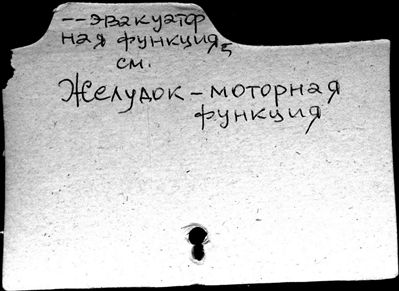 -- эвакуатор
ная функция,
см.
Желудок - моторная
функция